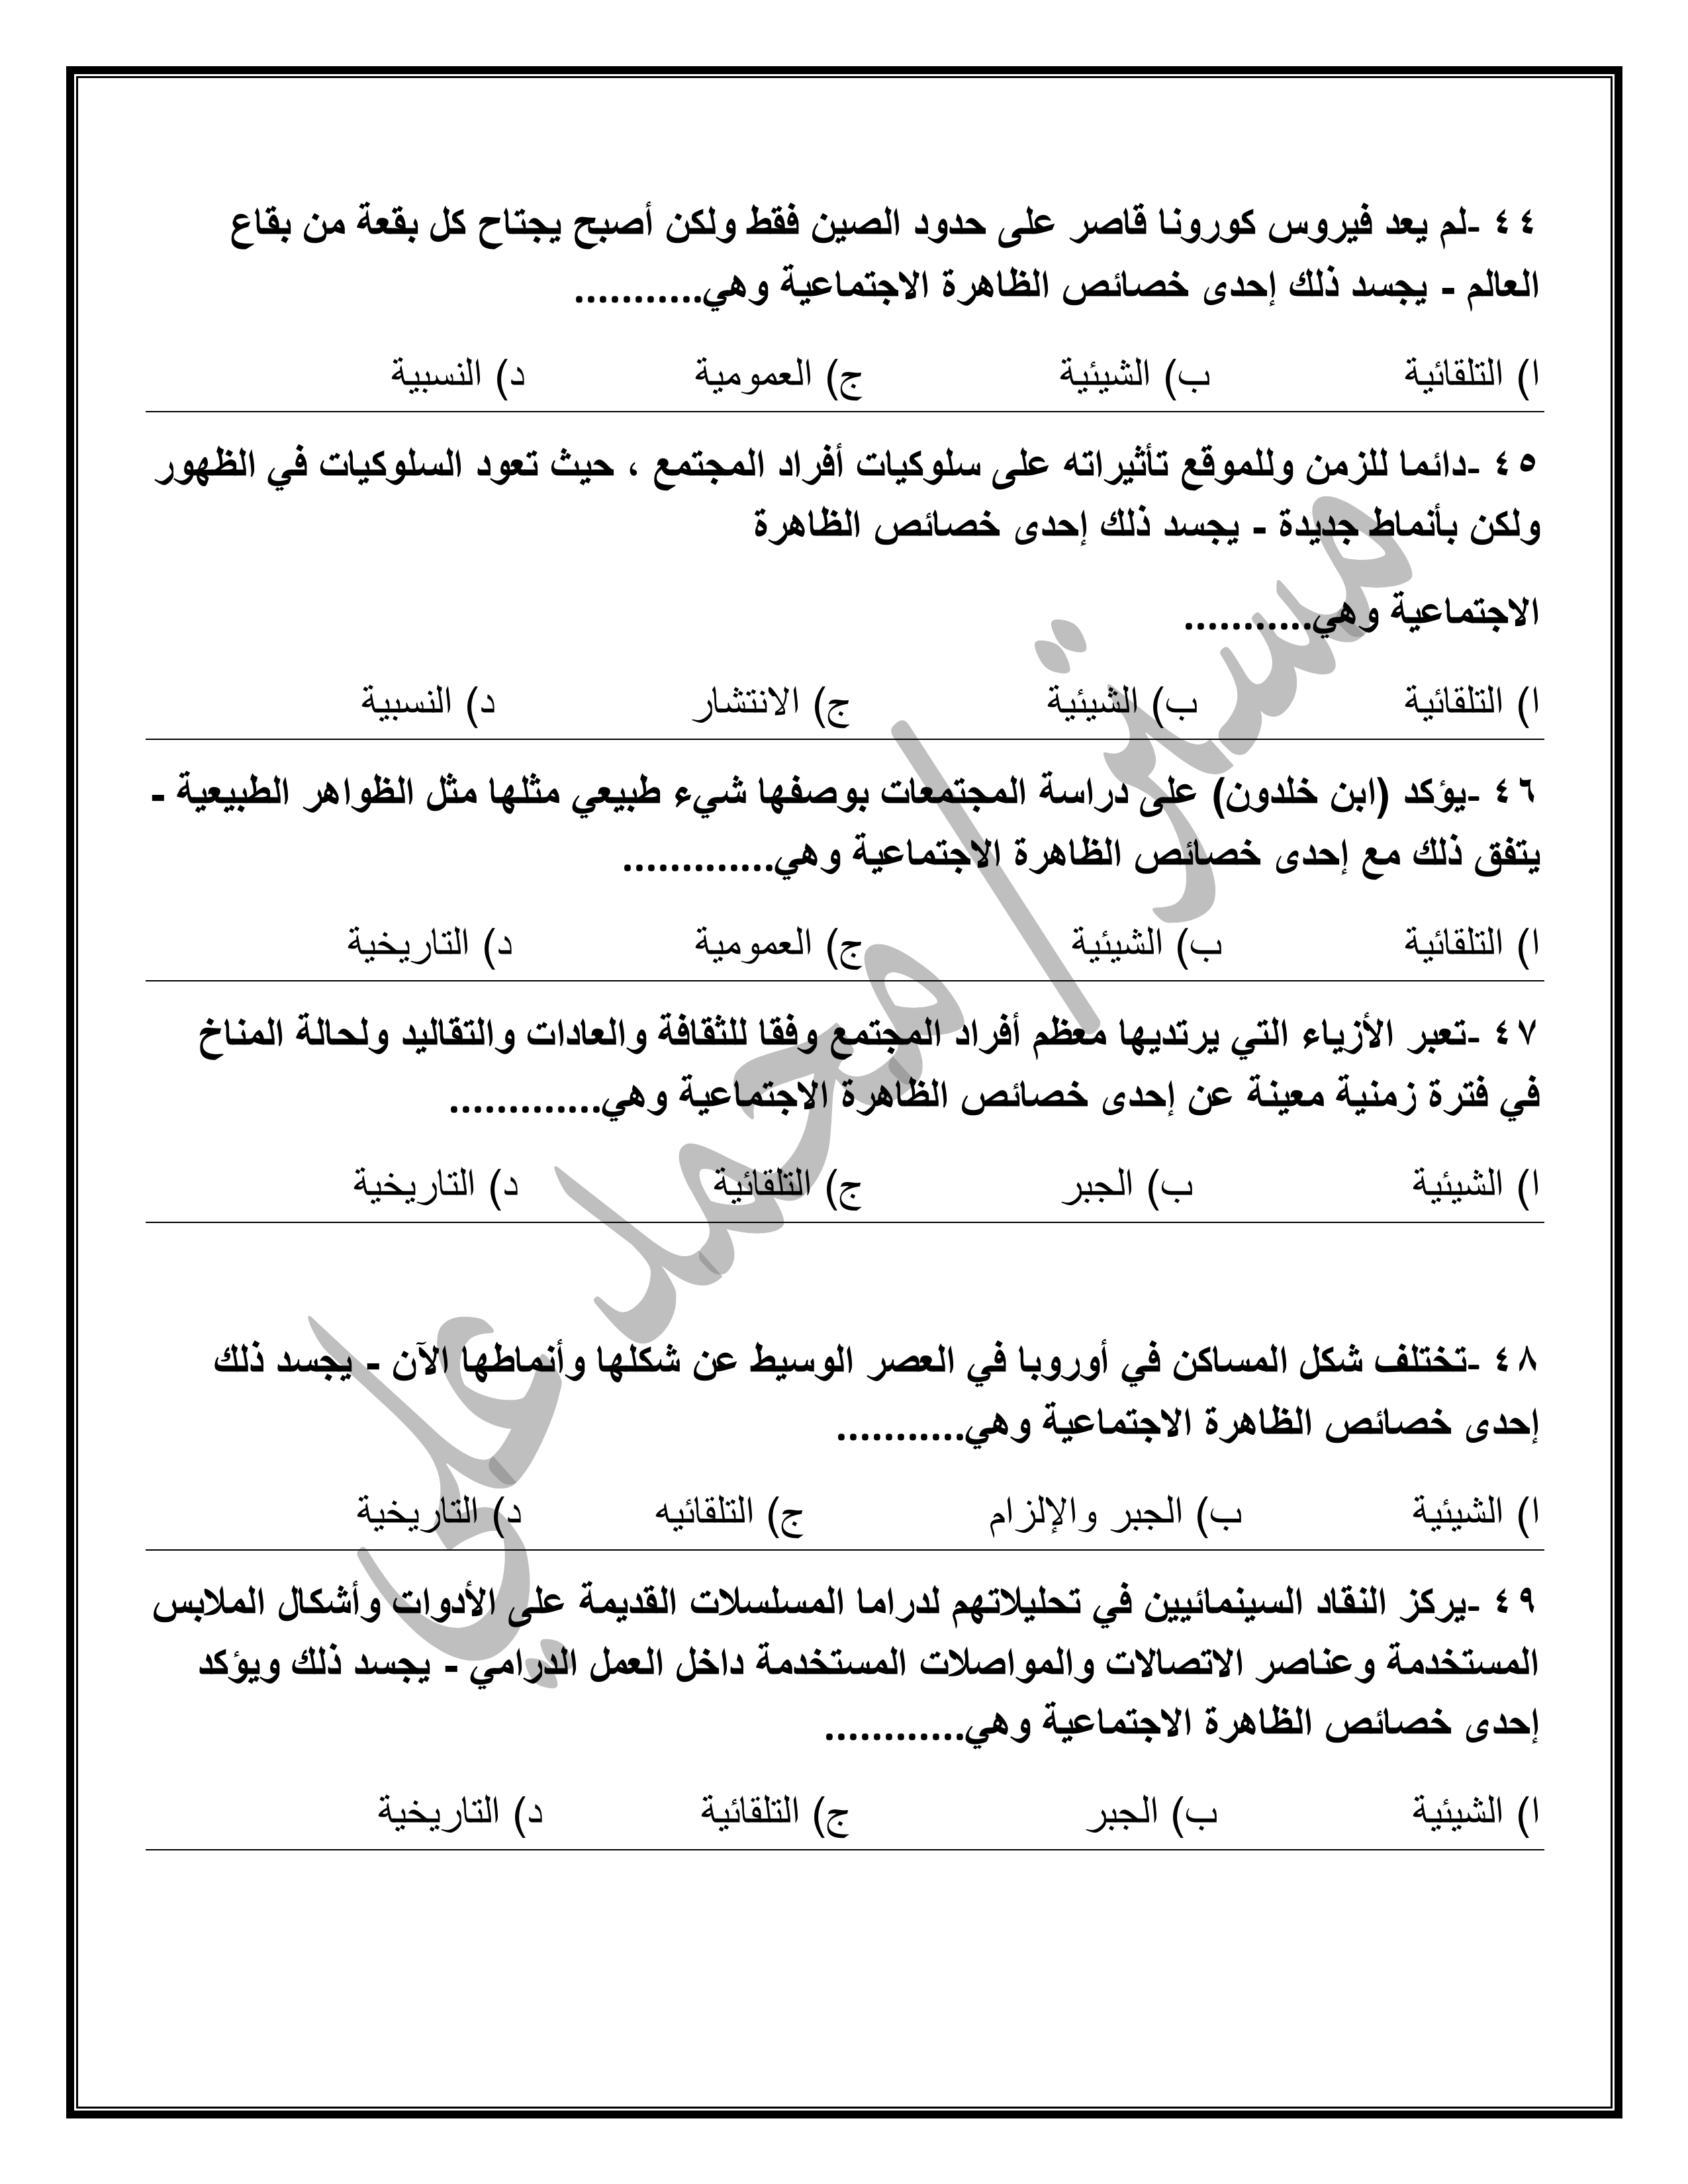 ٤٤ -لم يعد فيروس كورونا قاصر على حدود الصين فقط ولكن أصبح يجتاح كل بقعة من بقاع
العالم - يجسد ذلك إحدى خصائص الظاهرة الاجتماعية وهي...........
ا) التلقائية ب) الشيئية ج) العمومية د) النسبية
٤٥ -دائما للزمن وللموقع تأثيراته على سلوكيات أفراد المجتمع ، حيث تعود السلوكيات في الظهور
ولكن بأنماط جديدة - يجسد ذلك إحدى خصائص الظاهرة
الاجتماعية وهي...........
ا) التلقائية ب) الشيئية ج) الانتشار د) النسبية
٤٦ -يؤكد (ابن خلدون) على دراسة المجتمعات بوصفها شيء طبيعي مثلها مثل الظواهر الطبيعية -
يتفق ذلك مع إحدى خصائص الظاهرة الاجتماعية وهي.............
ا) التلقائية ب) الشيئية ج) العمومية د) التاريخية
٤٧ -تعبر الأزياء التي يرتديها معظم أفراد المجتمع وفقا للثقافة والعادات والتقاليد ولحالة المناخ
في فترة زمنية معينة عن إحدى خصائص الظاهرة الاجتماعية وهي.............
ا) الشيئية ب) الجبر ج) التلقائية د) التاريخية
٤٨ -تختلف شكل المساكن في أوروبا في العصر الوسيط عن شكلها وأنماطها الآن - يجسد ذلك
إحدى خصائص الظاهرة الاجتماعية وهي...........
ا) الشيئية ب) الجبر والإلزام ج) التلقائيه د) التاريخية
٤٩ -يركز النقاد السينمائيين في تحليلاتهم لدراما المسلسلات القديمة على الأدوات وأشكال الملابس
المستخدمة وعناصر الاتصالات والمواصلات المستخدمة داخل العمل الدرامي - يجسد ذلك ويؤكد
إحدى خصائص الظاهرة الاجتماعية وهي............
ا) الشيئية ب) الجبر ج) التلقائية د) التاريخية
مستر/محمد علي